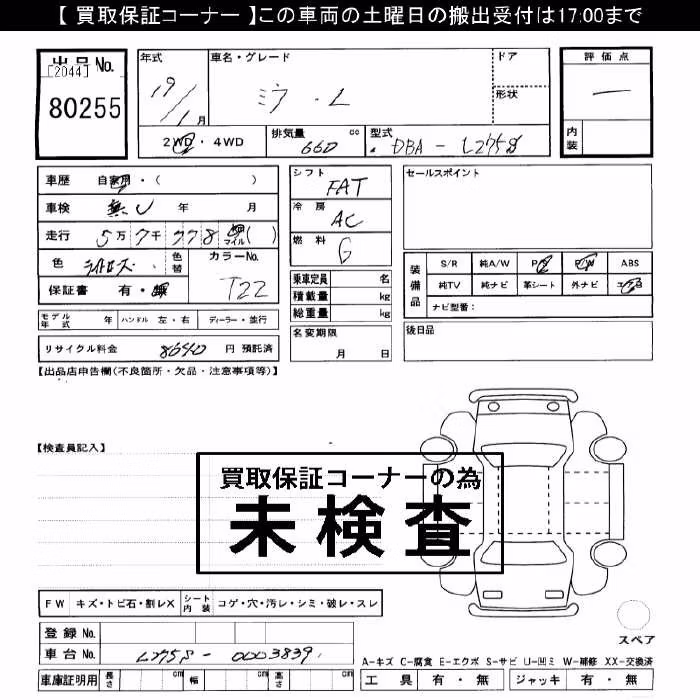 【 買取保証コーナー 】この車両の土曜日の搬出受付は17:00まで
出品No.
[2044]
80255
年式
19/1月
車名・グレード
ミラ・L
ドア
形状
評価点
―
内装
2WD・4WD
排気量 660 cc
型式 DBA-L275S
車歴 自家用・( )
車検 無し 年 月
走行 5万7千778 マイル ( )
色 ライトローズ
色替
カラーNo. T22
保証書 有・無
シフト FAT
冷房 AC
燃料 G
乗車定員 名
積載量 kg
総重量 kg
セールスポイント
装備品
S/R 純A/W P/S P/W ABS
純TV 純ナビ 革シート 外ナビ エアB
ナビ型番:
モデル年式 年 ハンドル 左・右 ディーラー・並行
名変期限 月 日
後日品
リサイクル料金 8640 円 預託済
【出品店申告欄(不良箇所・欠品・注意事項等)】
【検査員記入】
買取保証コーナーの為
未検査
FW キズ・トビ石・割レX
シート内装 コゲ・穴・汚レ・シミ・破レ・スレ
スペア
登録No.
車台No. L275S-0003839
A-キズ C-腐食 E-エクボ S-サビ U-凹ミ W-補修 XX-交換済
車庫証明用 長さ cm 幅 cm 高さ cm
工具 有・無 ジャッキ 有・無